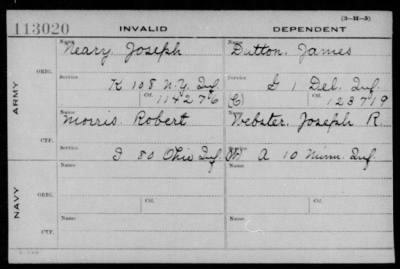 (3-H-5)
113020 INVALID DEPENDENT
ARMY
ORIG.
Name Neary, Joseph
Name Dutton, James
Service K 108 N.Y. Inf.
Service G 1 Del. Inf.
Ctf. 114276
(C) Ctf. 123719
CTF.
Name Morris, Robert
Name Webster, Joseph R.
Service I 80 Ohio Inf.
Service (W) A 10 Minn. Inf.
NAVY
ORIG.
Name
Name
Service
Ctf.
Service
Ctf.
CTF.
Name
Name
Service
Service